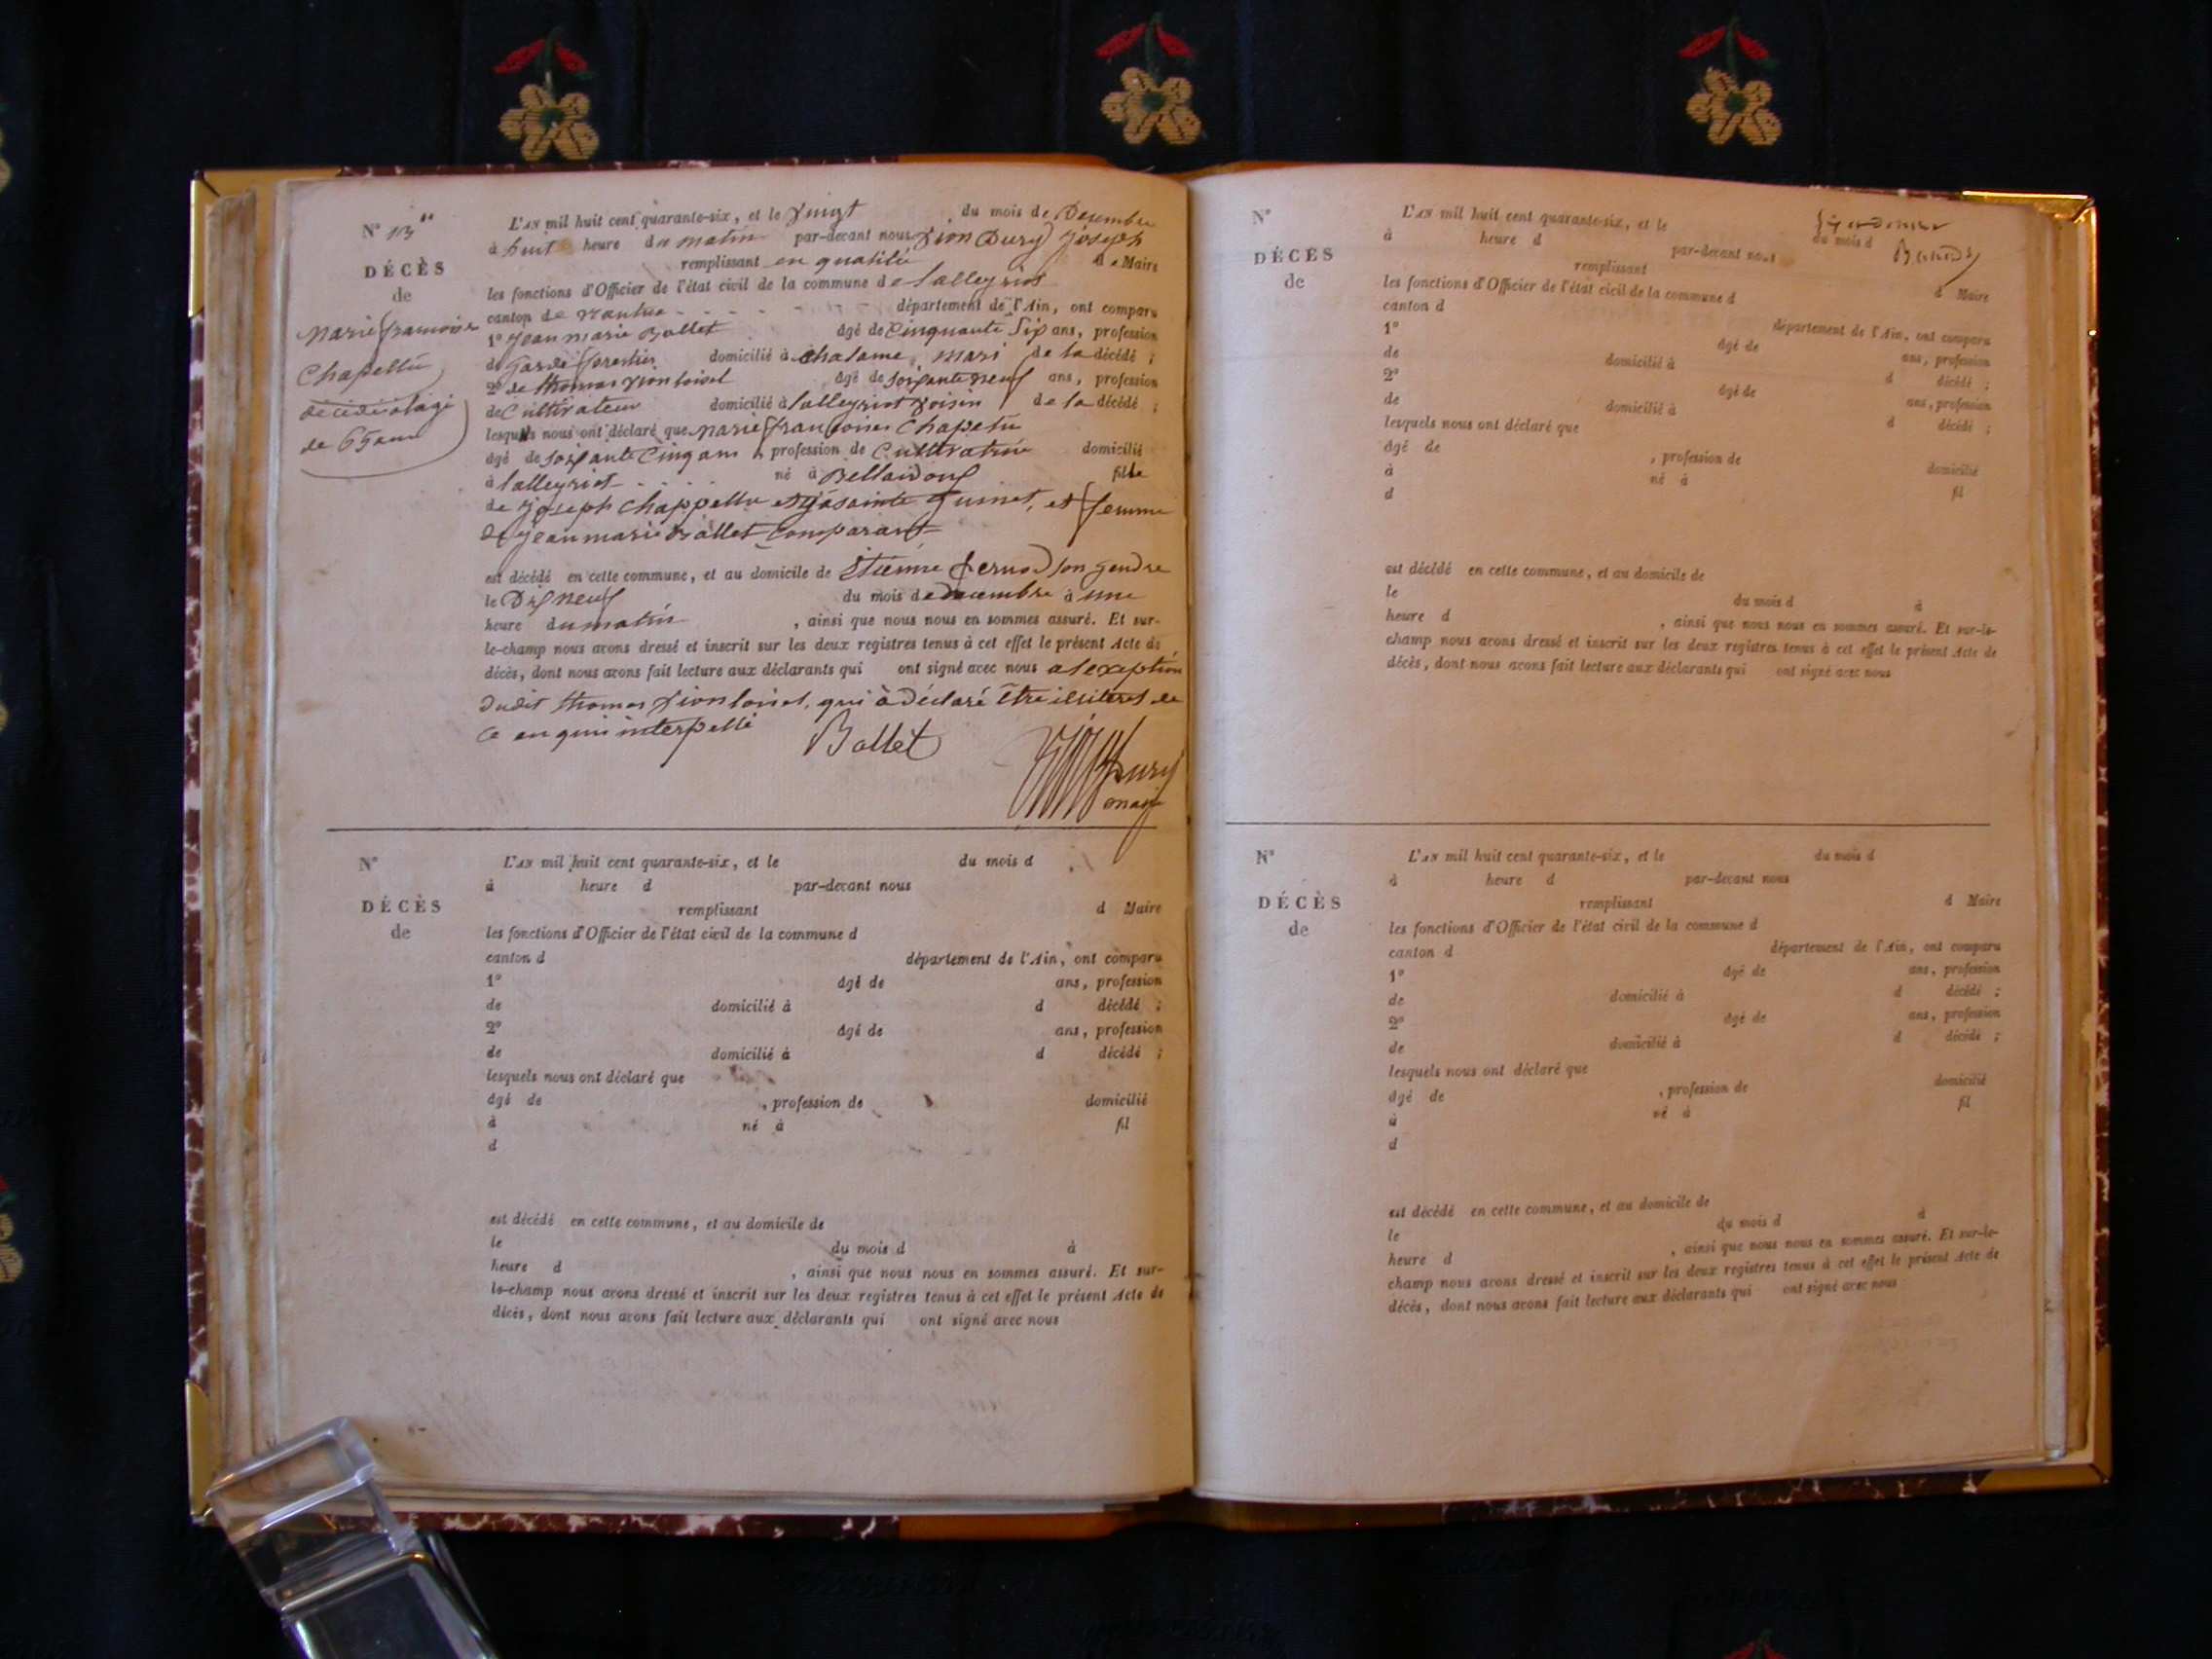 N° 13
DÉCÈS
de
marie françoise
Chapellu
décédé alage
de 65 ans
L'AN mil huit cent quarante-six, et le vingt du mois de Decembre
à huit heure du matin par-devant nous vion Dury joseph
remplissant en qualité de Maire
les fonctions d'Officier de l'état civil de la commune de lalleyriat
canton de nantua département de l'Ain, ont comparu
1° jean marie Ballet âgé de Cinquante Six ans, profession
de garde forestier domicilié à chalame, mari de la décédé ;
2° de thomas vion loisel âgé de soixante neuf ans, profession
de Cultivateur domicilié à lalleyriat voisin de la décédé ;
lesquels nous ont déclaré que marie françoise Chapelu
âgé de soixante Cinq ans, profession de Cultivatrice domicilié
à lalleyriat né à Belleydoux fille
de joseph chappellu et josainte Guinet, et femme
de jean marie Ballet Comparant
est décédé en cette commune, et au domicile de Etienne son gendre
le Dix neuf du mois de decembre à une
heure du matin, ainsi que nous nous en sommes assuré. Et sur-
le-champ nous avons dressé et inscrit sur les deux registres tenus à cet effet le présent Acte de
décès, dont nous avons fait lecture aux déclarants qui ont signé avec nous a lexception
dudit thomas vion loisel, qui à déclaré être illiteré de
ce enquis interpellé
Ballet
Dury
maire
N°
DÉCÈS
de
L'AN mil huit cent quarante-six, et le du mois d
à heure d par-devant nous
remplissant d Maire
les fonctions d'Officier de l'état civil de la commune d
canton d département de l'Ain, ont comparu
1° âgé de ans, profession
de domicilié à d décédé ;
2° âgé de ans, profession
de domicilié à d décédé ;
lesquels nous ont déclaré que
âgé de , profession de domicilié
à né à fil
d
est décédé en cette commune, et au domicile de
le du mois d à
heure d , ainsi que nous nous en sommes assuré. Et sur-
le-champ nous avons dressé et inscrit sur les deux registres tenus à cet effet le présent Acte de
décès, dont nous avons fait lecture aux déclarants qui ont signé avec nous
N°
DÉCÈS
de
L'AN mil huit cent quarante-six, et le du mois d
à heure d par-devant nous
remplissant d Maire
les fonctions d'Officier de l'état civil de la commune d
canton d département de l'Ain, ont comparu
1° âgé de ans, profession
de domicilié à d décédé ;
2° âgé de ans, profession
de domicilié à d décédé ;
lesquels nous ont déclaré que
âgé de , profession de domicilié
à né à fil
d
est décédé en cette commune, et au domicile de
le du mois d à
heure d , ainsi que nous nous en sommes assuré. Et sur-le-
champ nous avons dressé et inscrit sur les deux registres tenus à cet effet le présent Acte de
décès, dont nous avons fait lecture aux déclarants qui ont signé avec nous
N°
DÉCÈS
de
L'AN mil huit cent quarante-six, et le du mois d
à heure d par-devant nous
remplissant d Maire
les fonctions d'Officier de l'état civil de la commune d
canton d département de l'Ain, ont comparu
1° âgé de ans, profession
de domicilié à d décédé ;
2° âgé de ans, profession
de domicilié à d décédé ;
lesquels nous ont déclaré que
âgé de , profession de domicilié
à né à fil
d
est décédé en cette commune, et au domicile de
le du mois d à
heure d , ainsi que nous nous en sommes assuré. Et sur-le-
champ nous avons dressé et inscrit sur les deux registres tenus à cet effet le présent Acte de
décès, dont nous avons fait lecture aux déclarants qui ont signé avec nous